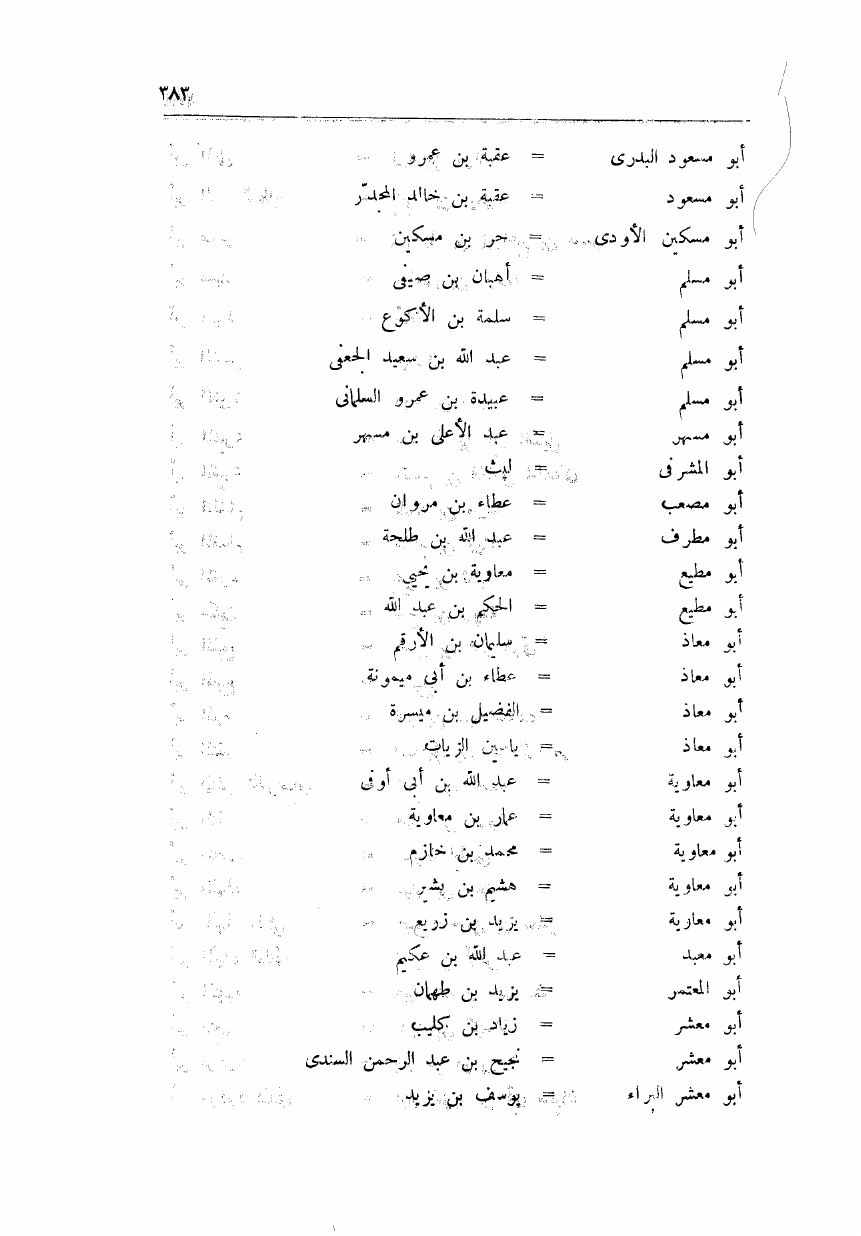 ٣٨٣
أبو مسعود البدرى = عقبة بن عمرو
أبو مسعود = عقبة بن خالد المجدّر
أبو مسكين الأودى = حر بن مسكين
أبو مسلم = أهبان بن صيفى
أبو مسلم = سلمة بن الأكوع
أبو مسلم = عبد الله بن سعيد الجعفى
أبو مسلم = عبيدة بن عمرو السلمانى
أبو مسهر = عبد الأعلى بن مسهر
أبو المشرفى = ليث
أبو مصعب = عطاء بن مروان
أبو مطرف = عبد الله بن طلحة
أبو مطيع = معاوية بن يحيى
أبو مطيع = الحكم بن عبد الله
أبو معاذ = سليمان بن الأرقم
أبو معاذ = عطاء بن أبى ميمونة
أبو معاذ = الفضيل بن ميسرة
أبو معاذ = ياسين الزيات
أبو معاوية = عبد الله بن أبى أوفى
أبو معاوية = عمار بن معاوية
أبو معاوية = محمد بن خازم
أبو معاوية = هشيم بن بشير
أبو معاوية = يزيد بن زريع
أبو معبد = عبد الله بن عكيم
أبو المعتمر = يزيد بن طهمان
أبو معشر = زياد بن كليب
أبو معشر = نجيح بن عبد الرحمن السندى
أبو معشر البراء = يوسف بن يزيد